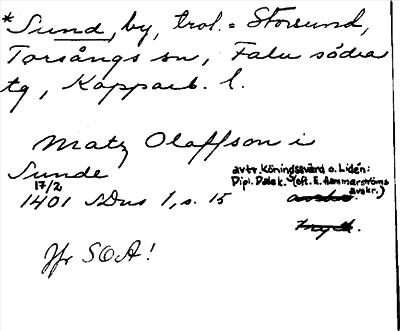 *Sund, by, trol. = Storsund,
Torsångs sn, Falu södra
tg, Kopparb. l.
Matz Olaffson i
Sunde
17/2
1401 SDns 1, s. 15
avtr. Köningssvärd o. Lidén:
Dipl. Dalek. (eft. E. Hammarströms
avskr.)
Jfr SOÄ!